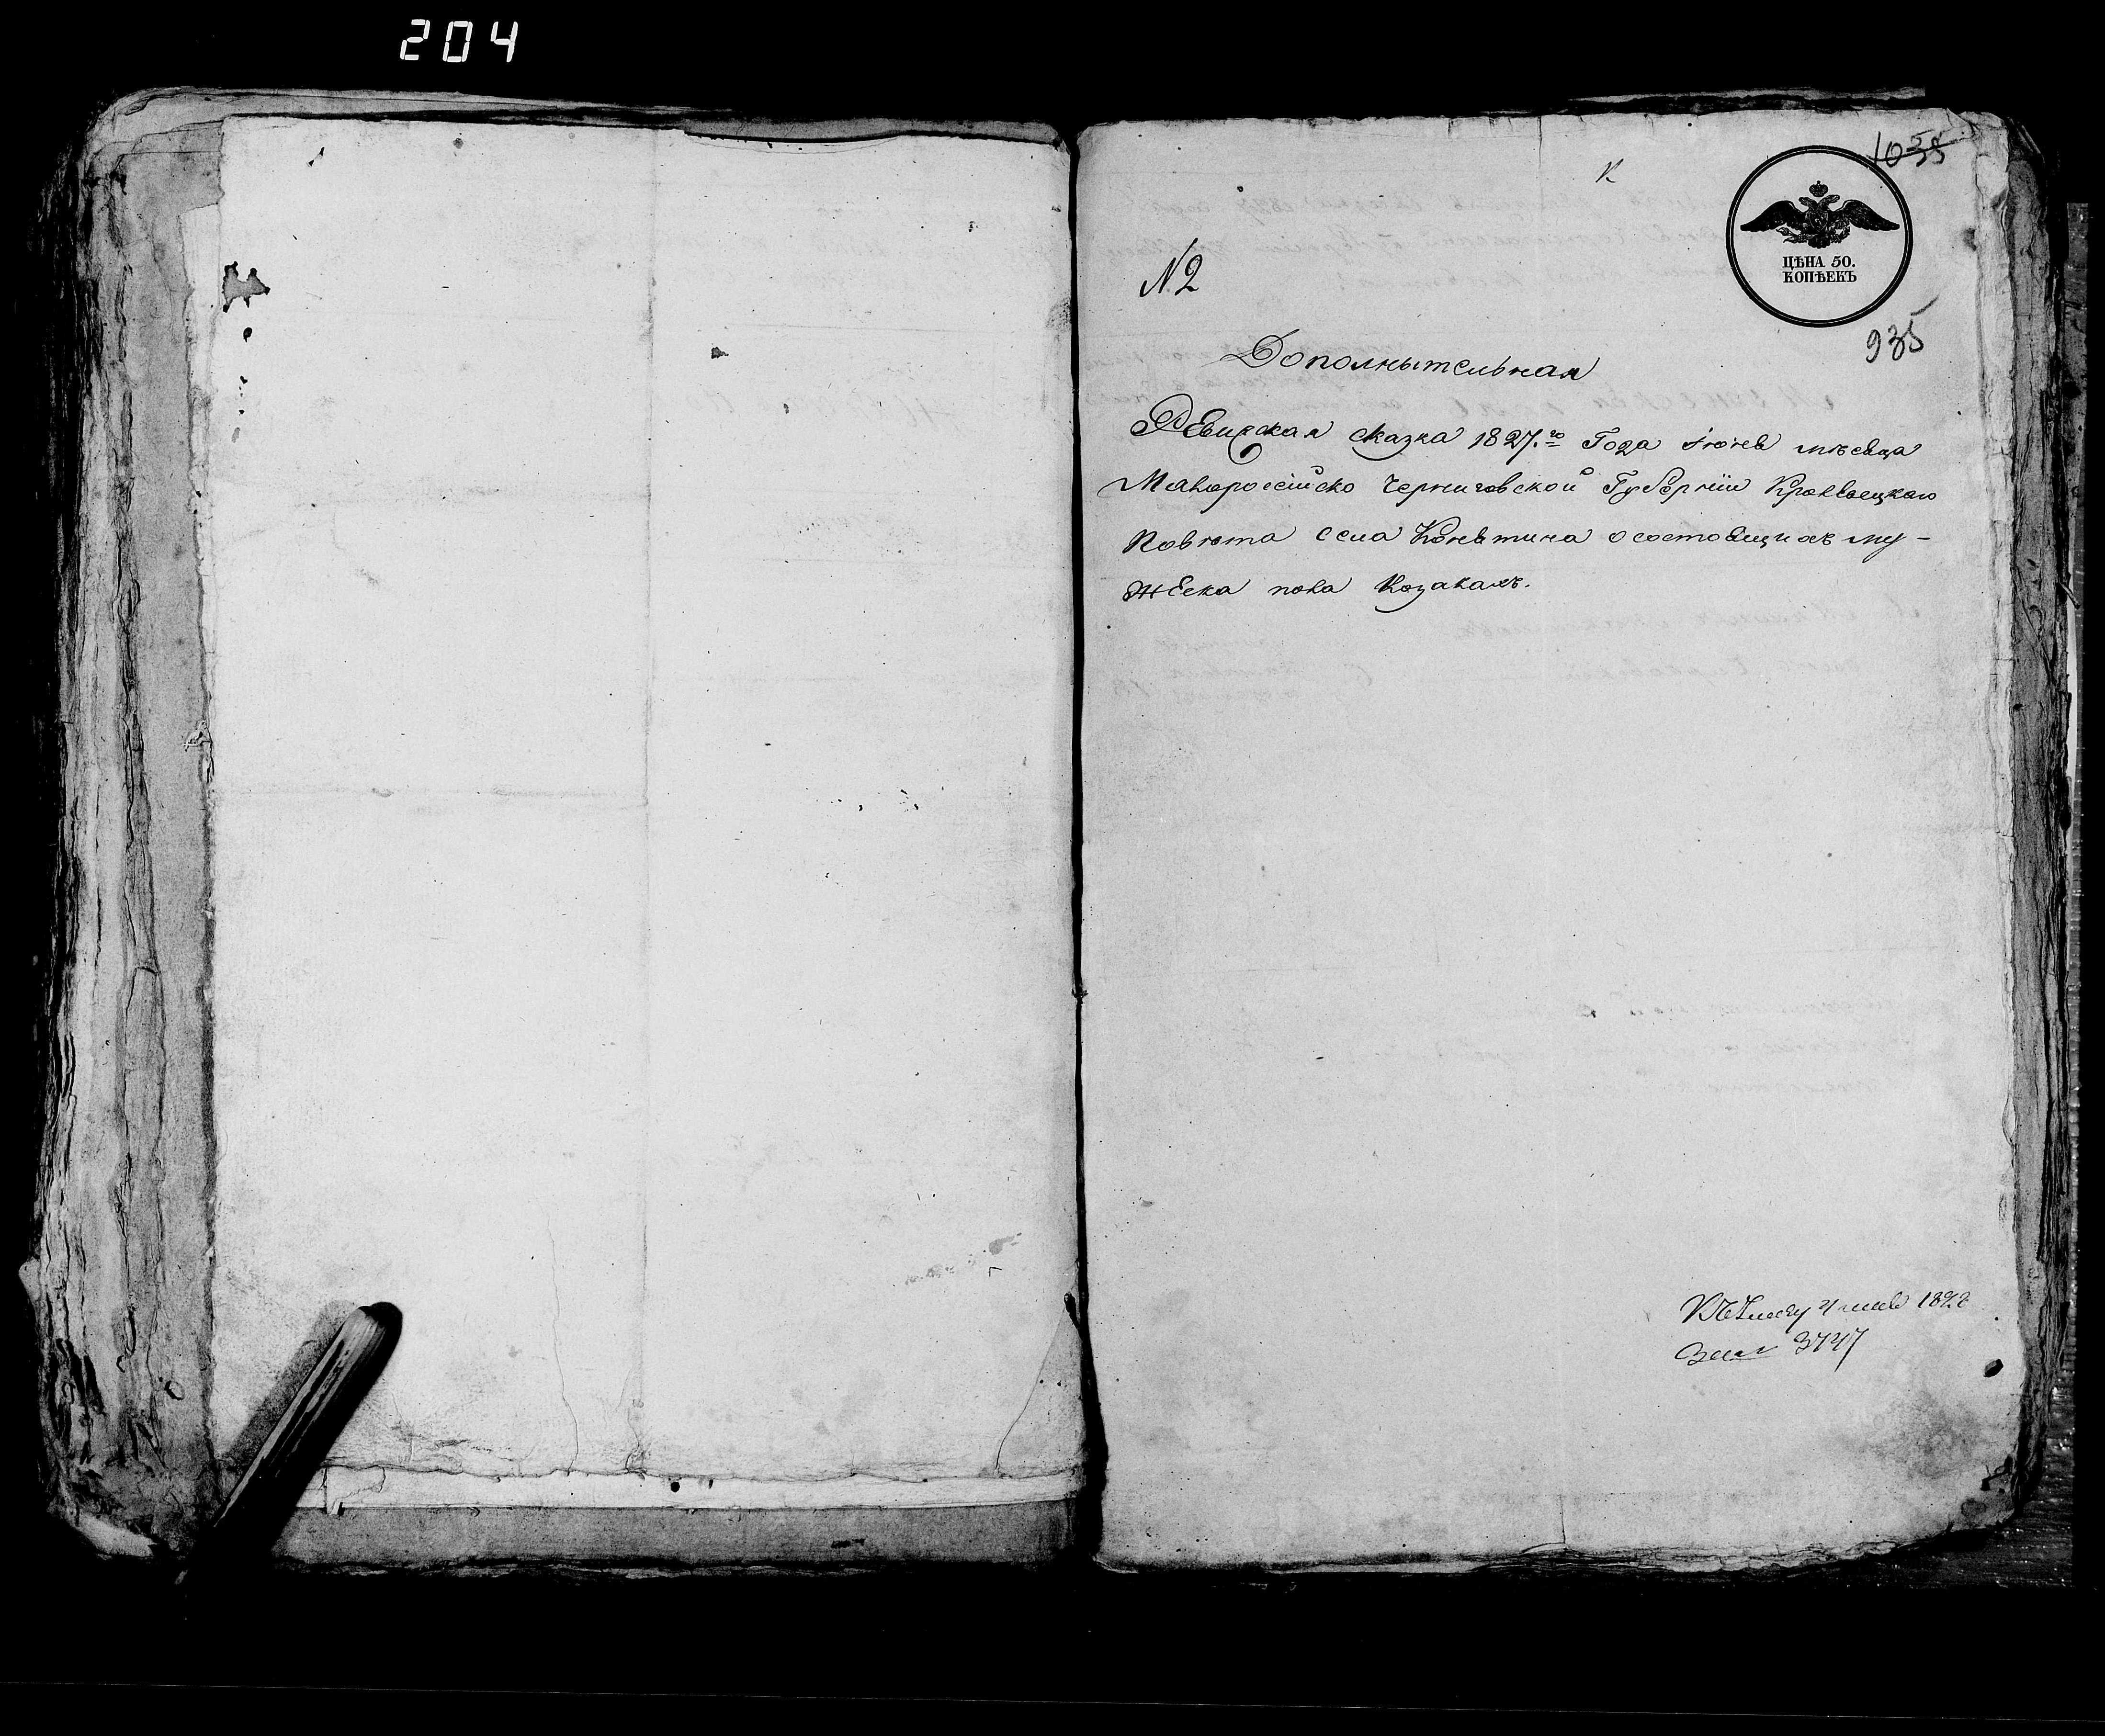 204
1035
К
ЦѢНА 50.
КОПѢЕКЪ
N2
935
Дополнытельная
Ревизская сказка 1827.го Года Июнѣ мѣсяца
Малоросейско Черниговской Губернии Кролевецкого
Повѣта села Конѣтина о состоящихъ му-
жеска пола Козакахъ.
1828
3747